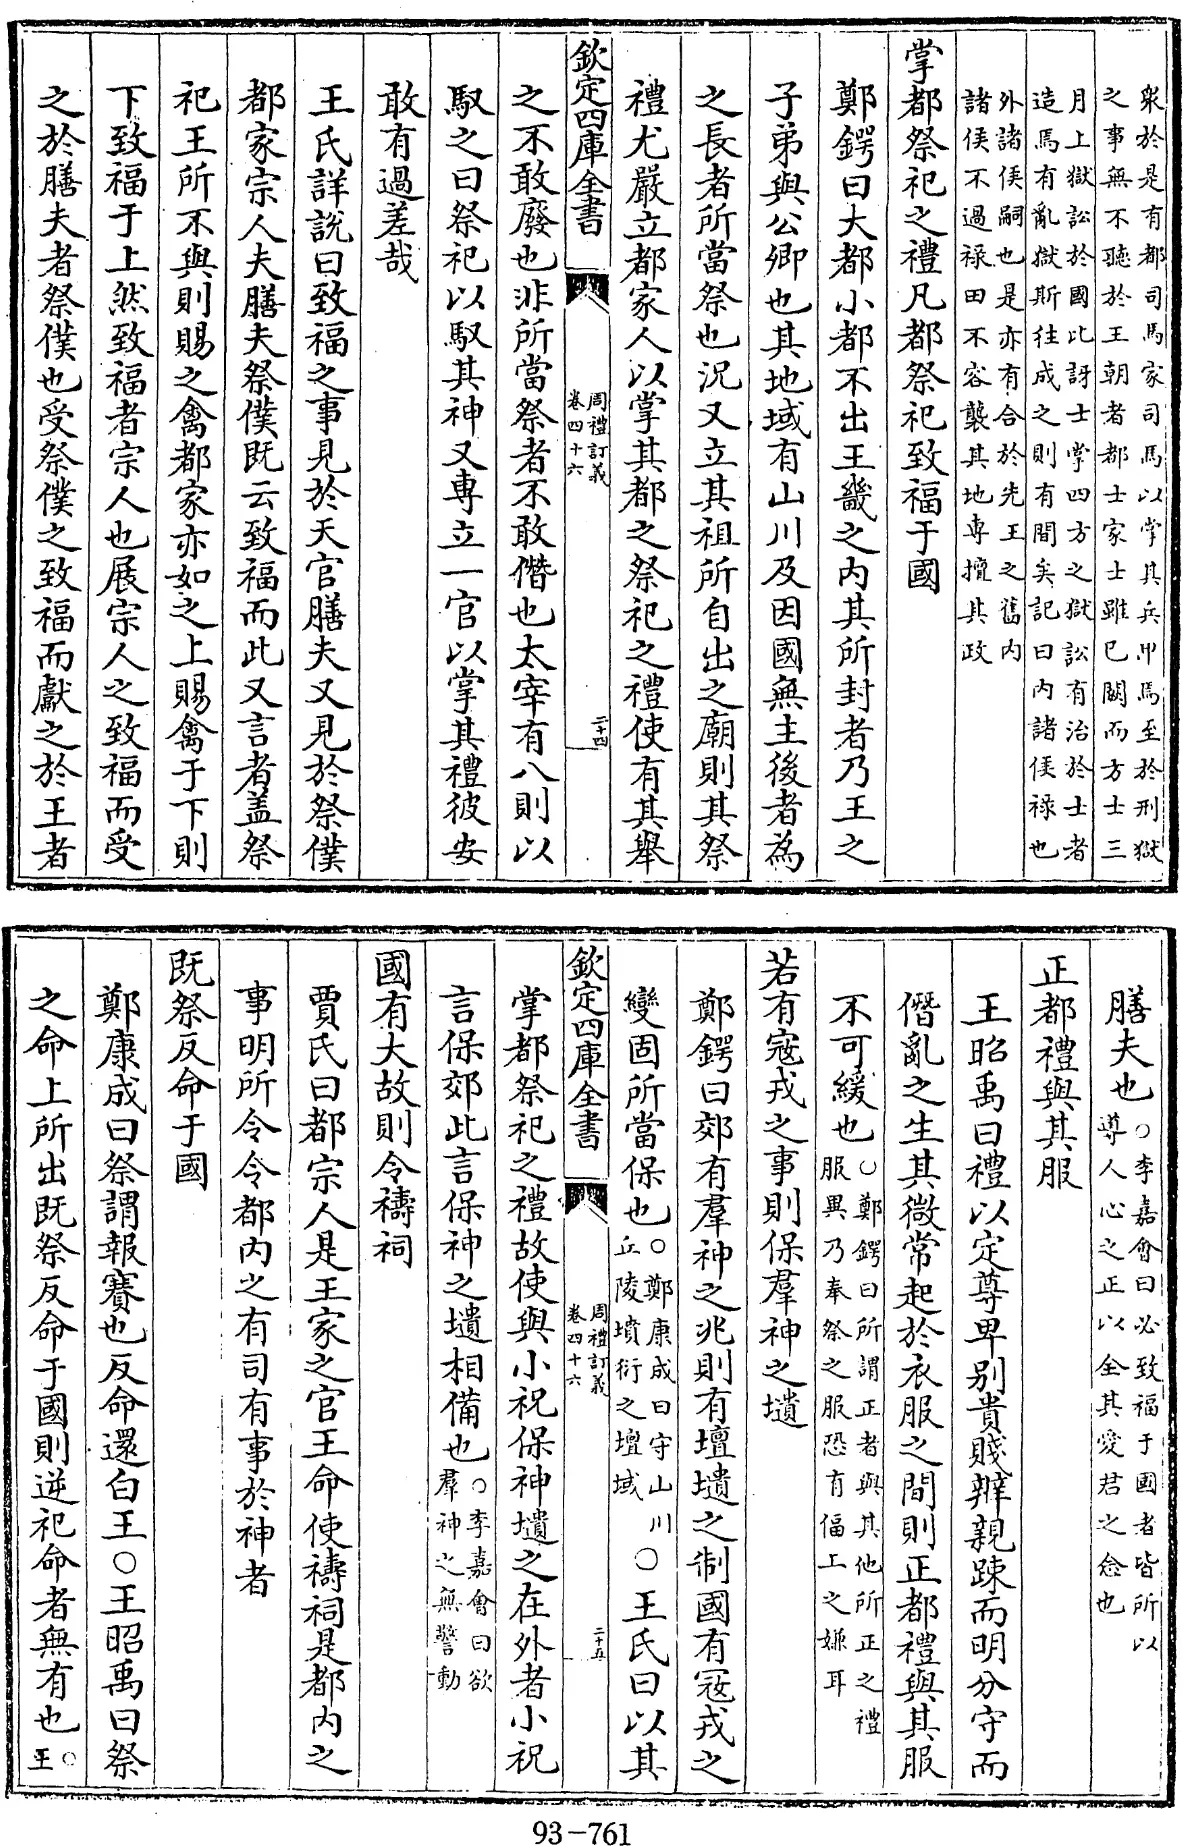 衆於是有都司馬家司馬以掌其兵甲馬至於刑獄
之事無不聽於王朝者都士家士雖已闕而方士三
月上獄訟於國比訝士掌四方之獄訟有治於士者
造焉有亂獄斯往成之則有間矣記曰内諸侯祿也
外諸侯嗣也是亦有合於先王之舊内
諸侯不過祿田不容襲其地專擅其政
掌都祭祀之禮凡都祭祀致福于國
鄭鍔曰大都小都不出王畿之内其所封者乃王之
子弟與公卿也其地域有山川及因國無主後者為
之長者所當祭也況又立其祖所自出之廟則其祭
禮尤嚴立都家人以掌其都之祭祀之禮使有其舉
欽定四庫全書
周禮訂義
卷四十六
二十四
之不敢廢也非所當祭者不敢僭也太宰有八則以
馭之曰祭祀以馭其神又專立一官以掌其禮彼安
敢有過差哉
王氏詳説曰致福之事見於天官膳夫又見於祭僕
都家宗人夫膳夫祭僕既云致福而此又言者盖祭
祀王所不與則賜之禽都家亦如之上賜禽于下則
下致福于上然致福者宗人也展宗人之致福而受
之於膳夫者祭僕也受祭僕之致福而獻之於王者
膳夫也
○李嘉會曰必致福于國者皆所以
導人心之正以全其愛君之念也
正都禮與其服
王昭禹曰禮以定尊卑别貴賤辨親踈而明分守而
僭亂之生其微常起於衣服之間則正都禮與其服
不可緩也
○鄭鍔曰所謂正者與其他所正之禮
服異乃奉祭之服恐有偪上之嫌耳
若有寇戎之事則保羣神之壝
鄭鍔曰郊有羣神之兆則有壇壝之制國有寇戎之
變固所當保也
○鄭康成曰守山川
丘陵墳衍之壇域
○王氏曰以其
欽定四庫全書
周禮訂義
卷四十六
二十五
掌都祭祀之禮故使與小祝保神壝之在外者小祝
言保郊此言保神之壝相備也
○李嘉會曰欲
羣神之無警動
國有大故則令禱祠
賈氏曰都宗人是王家之官王命使禱祠是都内之
事明所令令都内之有司有事於神者
既祭反命于國
鄭康成曰祭謂報賽也反命還白王○王昭禹曰祭
之命上所出既祭反命于國則逆祀命者無有也
○
王
93-761